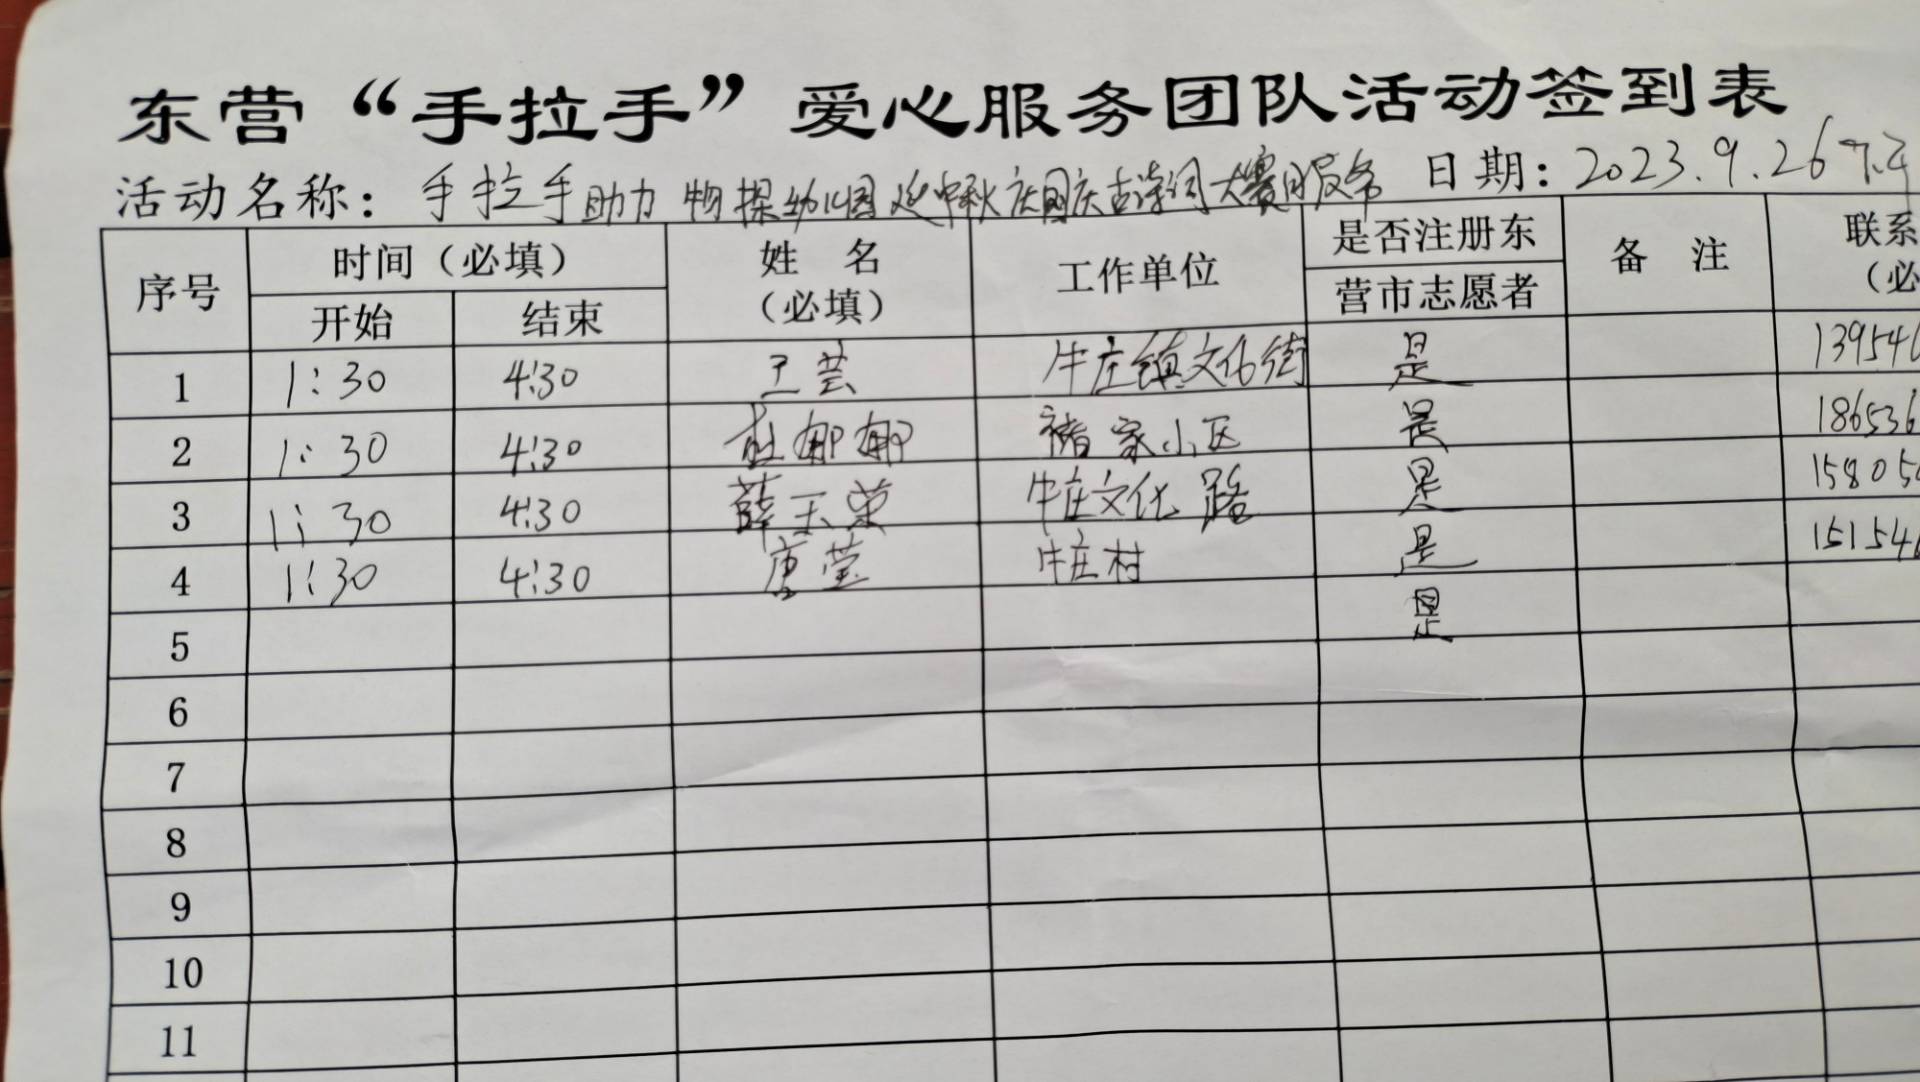 东营“手拉手”爱心服务团队活动签到表
活动名称：手拉手助力物探幼儿园迎中秋庆国庆古诗词大赛 服务 日期：2023.9.26 下午
序号 时间（必填） 姓 名（必填） 工作单位 是否注册东营市志愿者 备 注 联系（必
开始 结束
1 1:30 4:30 王芸 牛庄镇文化街 是 139546
2 1:30 4:30 杜郁郁 褚家小区 是 186536
3 1:30 4:30 薛玉荣 牛庄文化路 是 158054
4 1:30 4:30 唐莹 牛庄村 是 151546
5 是
6
7
8
9
10
11